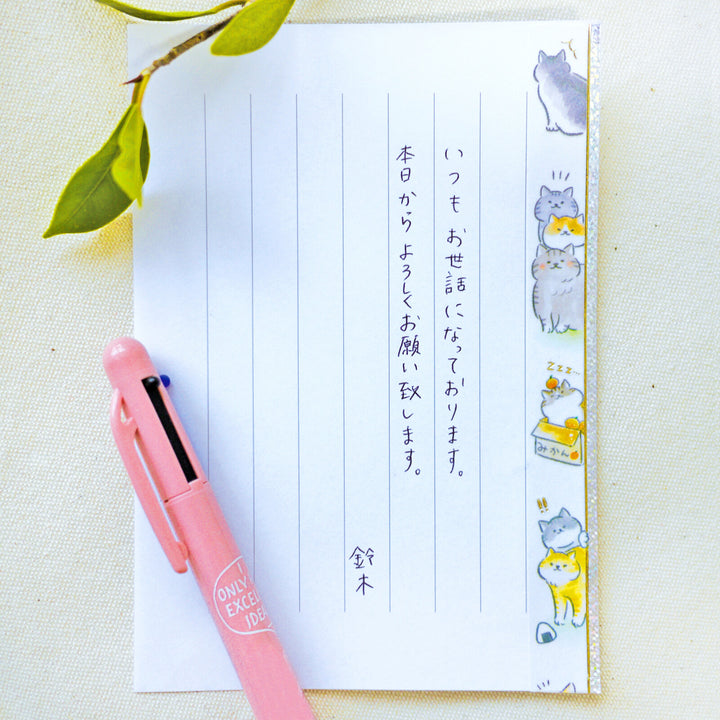 いつもお世話になっております。
本日からよろしくお願い致します。
鈴木
zzz...
みかん
!!
I
ONLY
EXCEL
IDEA